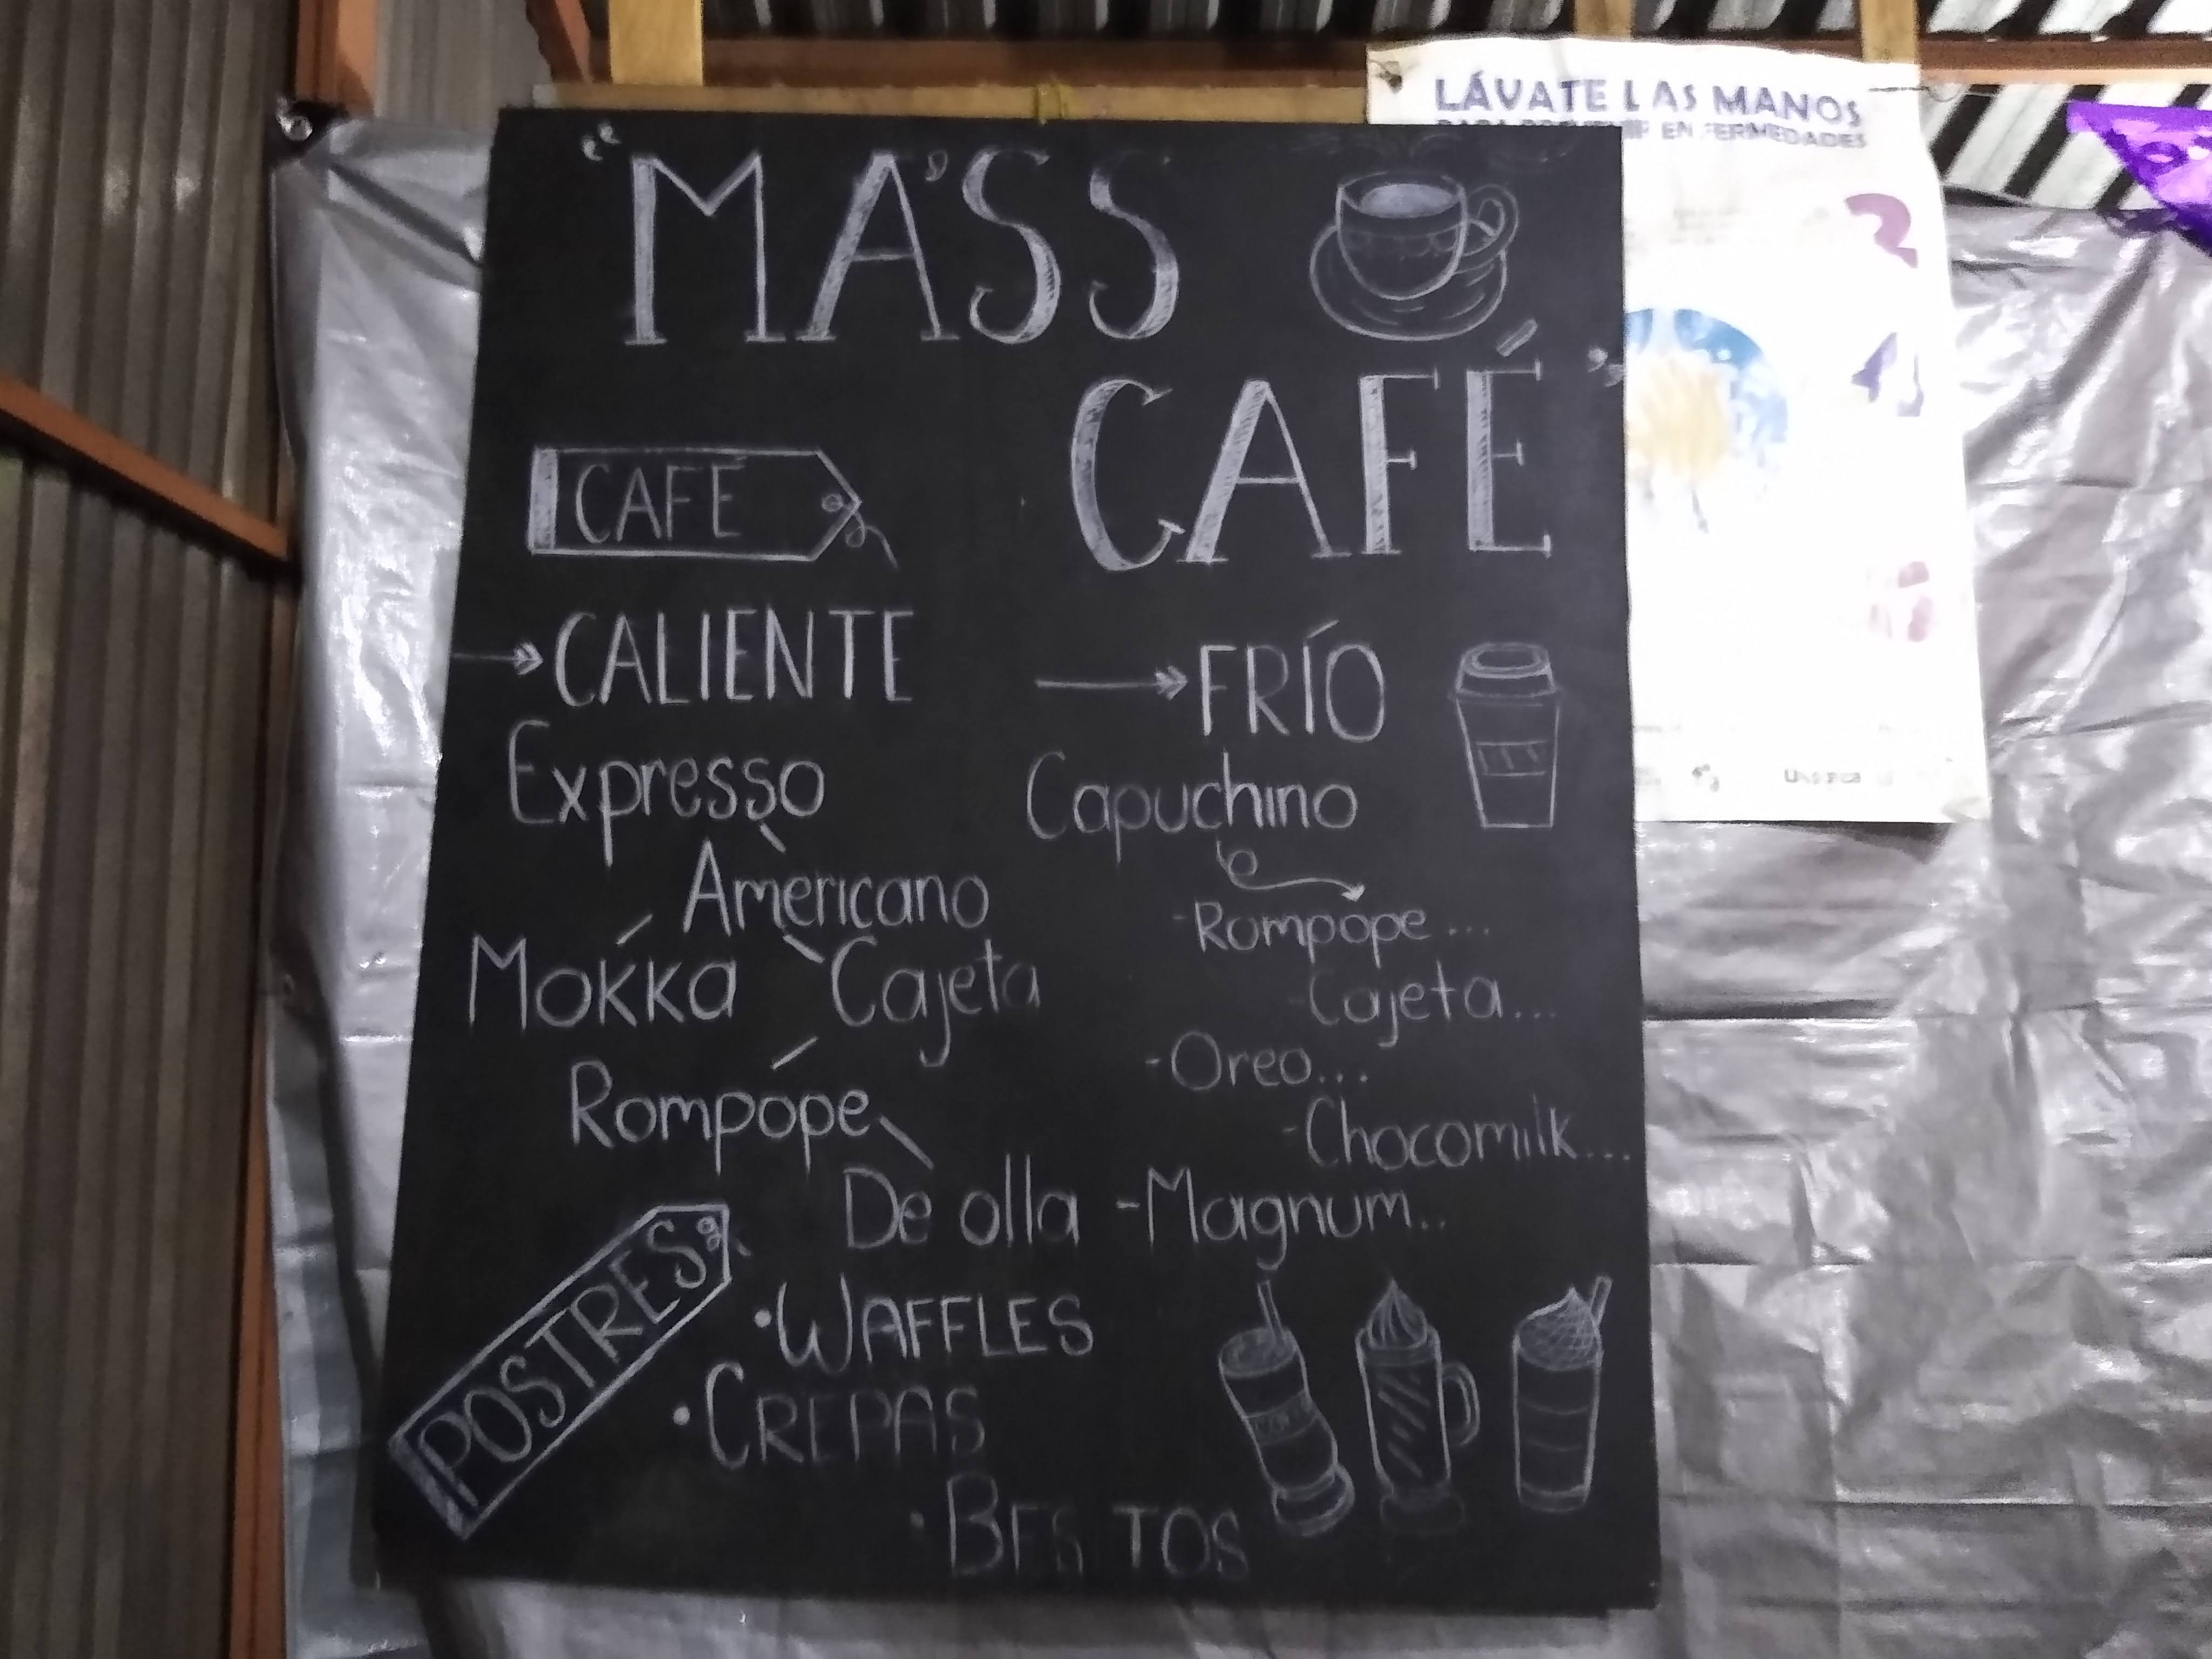 "MA'SS
CAFÉ"
CAFE
CALIENTE
Expresso
Americano
Mokka
Cajeta
Rompope
De olla
FRÍO
Capuchino
-Rompope...
-Cajeta...
-Oreo...
-Chocomilk...
-Magnum..
POSTRES
•WAFFLES
•CREPAS
•BESITOS
LÁVATE LAS MANOS
PARA PREVENIR ENFERMEDADES